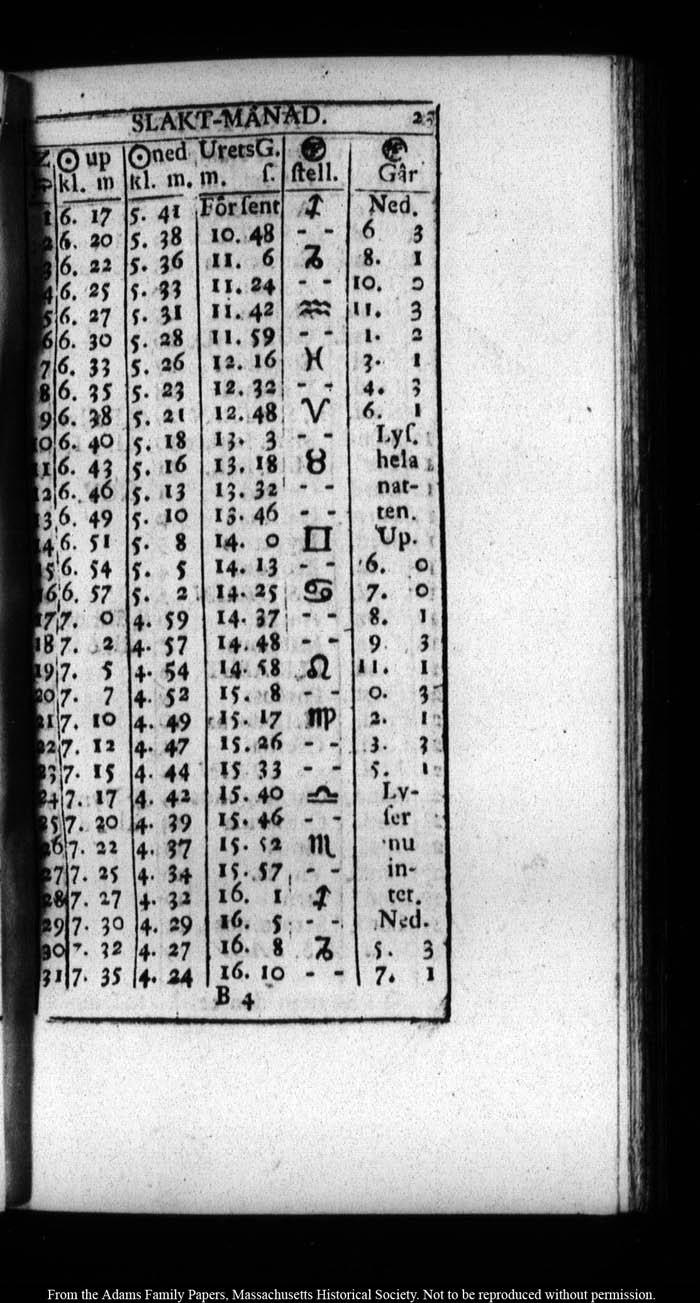 SLAKT-MÅNAD.
☉ up ☉ned UretsG. ☾ ☾
kl. m kl. m. m. ſ. ſtell. Går
1 6. 17 5. 41 För ſent ♐ Ned.
2 6. 20 5. 38 10. 48 - - 6 3
3 6. 22 5. 36 11. 6 ♑ 8. 1
4 6. 25 5. 33 11. 24 - - 10. 0
5 6. 27 5. 31 11. 42 ♒ 11. 3
6 6. 30 5. 28 11. 59 - - 1. 2
7 6. 33 5. 26 12. 16 ♓ 3. 1
8 6. 35 5. 23 12. 32 - - 4. 3
9 6. 38 5. 21 12. 48 ♈ 6. 1
10 6. 40 5. 18 13. 3 - - Lyſ.
11 6. 43 5. 16 13. 18 ♉ hela
12 6. 46 5. 13 13. 32 - - nat-
13 6. 49 5. 10 13. 46 - - ten.
14 6. 51 5. 8 14. 0 ♊ Up.
15 6. 54 5. 5 14. 13 - - 6. 0
16 6. 57 5. 2 14. 25 ♋ 7. 0
17 7. 0 4. 59 14. 37 - - 8. 1
18 7. 2 4. 57 14. 48 - - 9 3
19 7. 5 4. 54 14. 58 ♌ 11. 1
20 7. 7 4. 52 15. 8 - - 0. 3
21 7. 10 4. 49 15. 17 ♍ 2. 1
22 7. 12 4. 47 15. 26 - - 3. 3
23 7. 15 4. 44 15 33 - - 5. 1
24 7. 17 4. 42 15. 40 ♎ Ly-
25 7. 20 4. 39 15. 46 - - ſer
26 7. 22 4. 37 15. 52 ♏ nu
27 7. 25 4. 34 15. 57 - - in-
28 7. 27 4. 32 16. 1 ♐ tet.
29 7. 30 4. 29 16. 5 - - Ned.
30 7. 32 4. 27 16. 8 ♑ 5. 3
31 7. 35 4. 24 16. 10 - - 7. 1
B 4
From the Adams Family Papers, Massachusetts Historical Society. Not to be reproduced without permission.